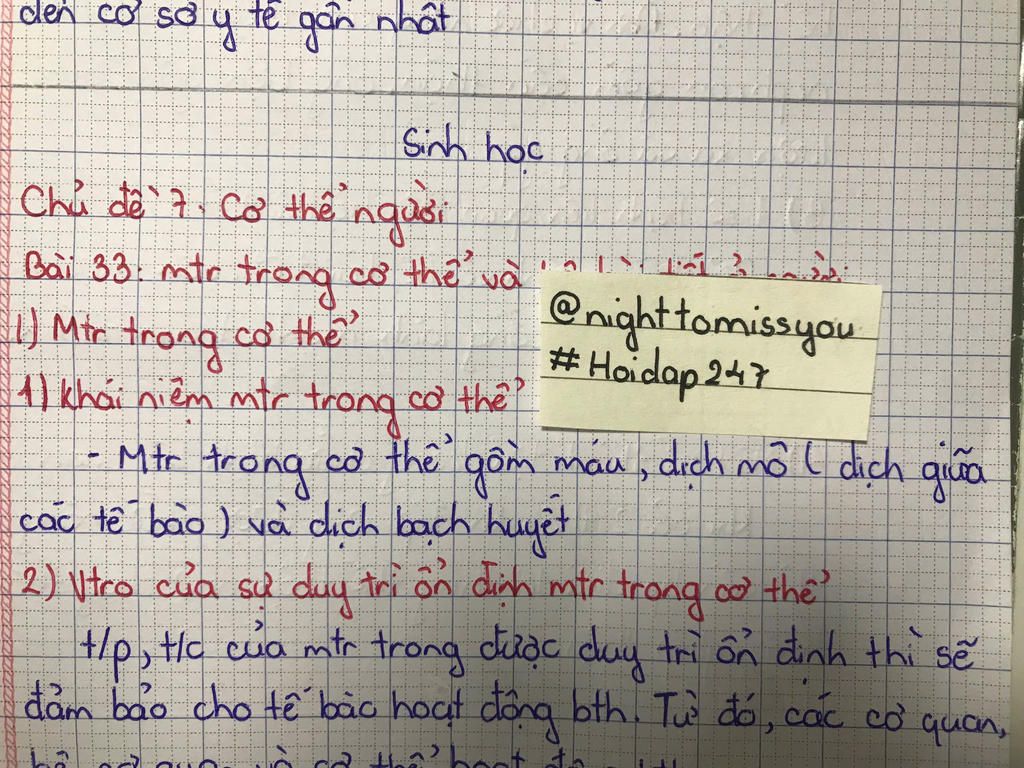 đến cơ sở y tế gần nhất
Sinh học
Chủ đề 7. Cơ thể người
Bài 33: mtr trong cơ thể và
@nighttomissyou
#Hoidap247
I) Mtr trong cơ thể
1) Khái niệm mtr trong cơ thể
- Mtr trong cơ thể gồm máu, dịch mô ( dịch giữa
các tế bào ) và dịch bạch huyết
2) Vtro của sự duy trì ổn định mtr trong cơ thể
t/p, t/c của mtr trong được duy trì ổn định thì sẽ
đảm bảo cho tế bào hoạt động bth. Từ đó, các cơ quan,